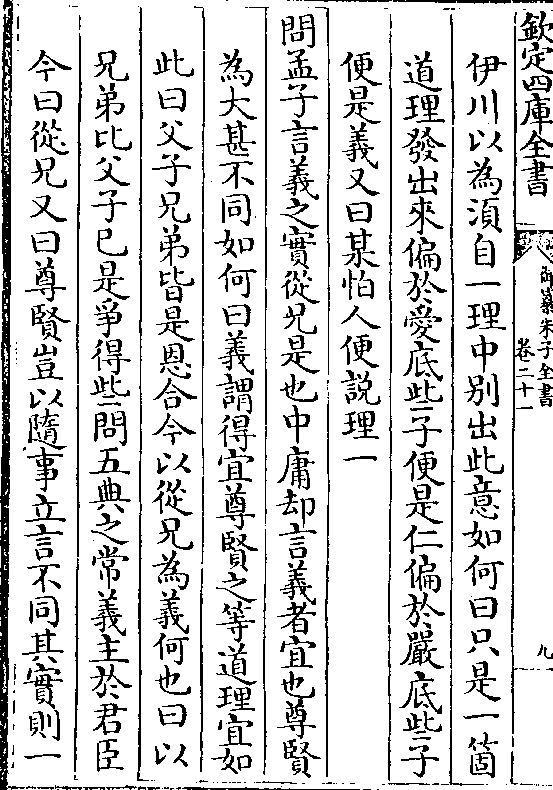 欽定四庫全書
御纂朱子全書
卷二十一
九
伊川以為須自一理中別出此意如何曰只是一箇
道理發出來偏於愛底些子便是仁偏於嚴底些子
便是義又曰某怕人便説理一
問孟子言義之實從兄是也中庸却言義者宜也尊賢
為大甚不同如何曰義謂得宜尊賢之等道理宜如
此曰父子兄弟皆是恩合今以從兄為義何也曰以
兄弟比父子已是爭得些問五典之常義主於君臣
今曰從兄又曰尊賢豈以隨事立言不同其實則一